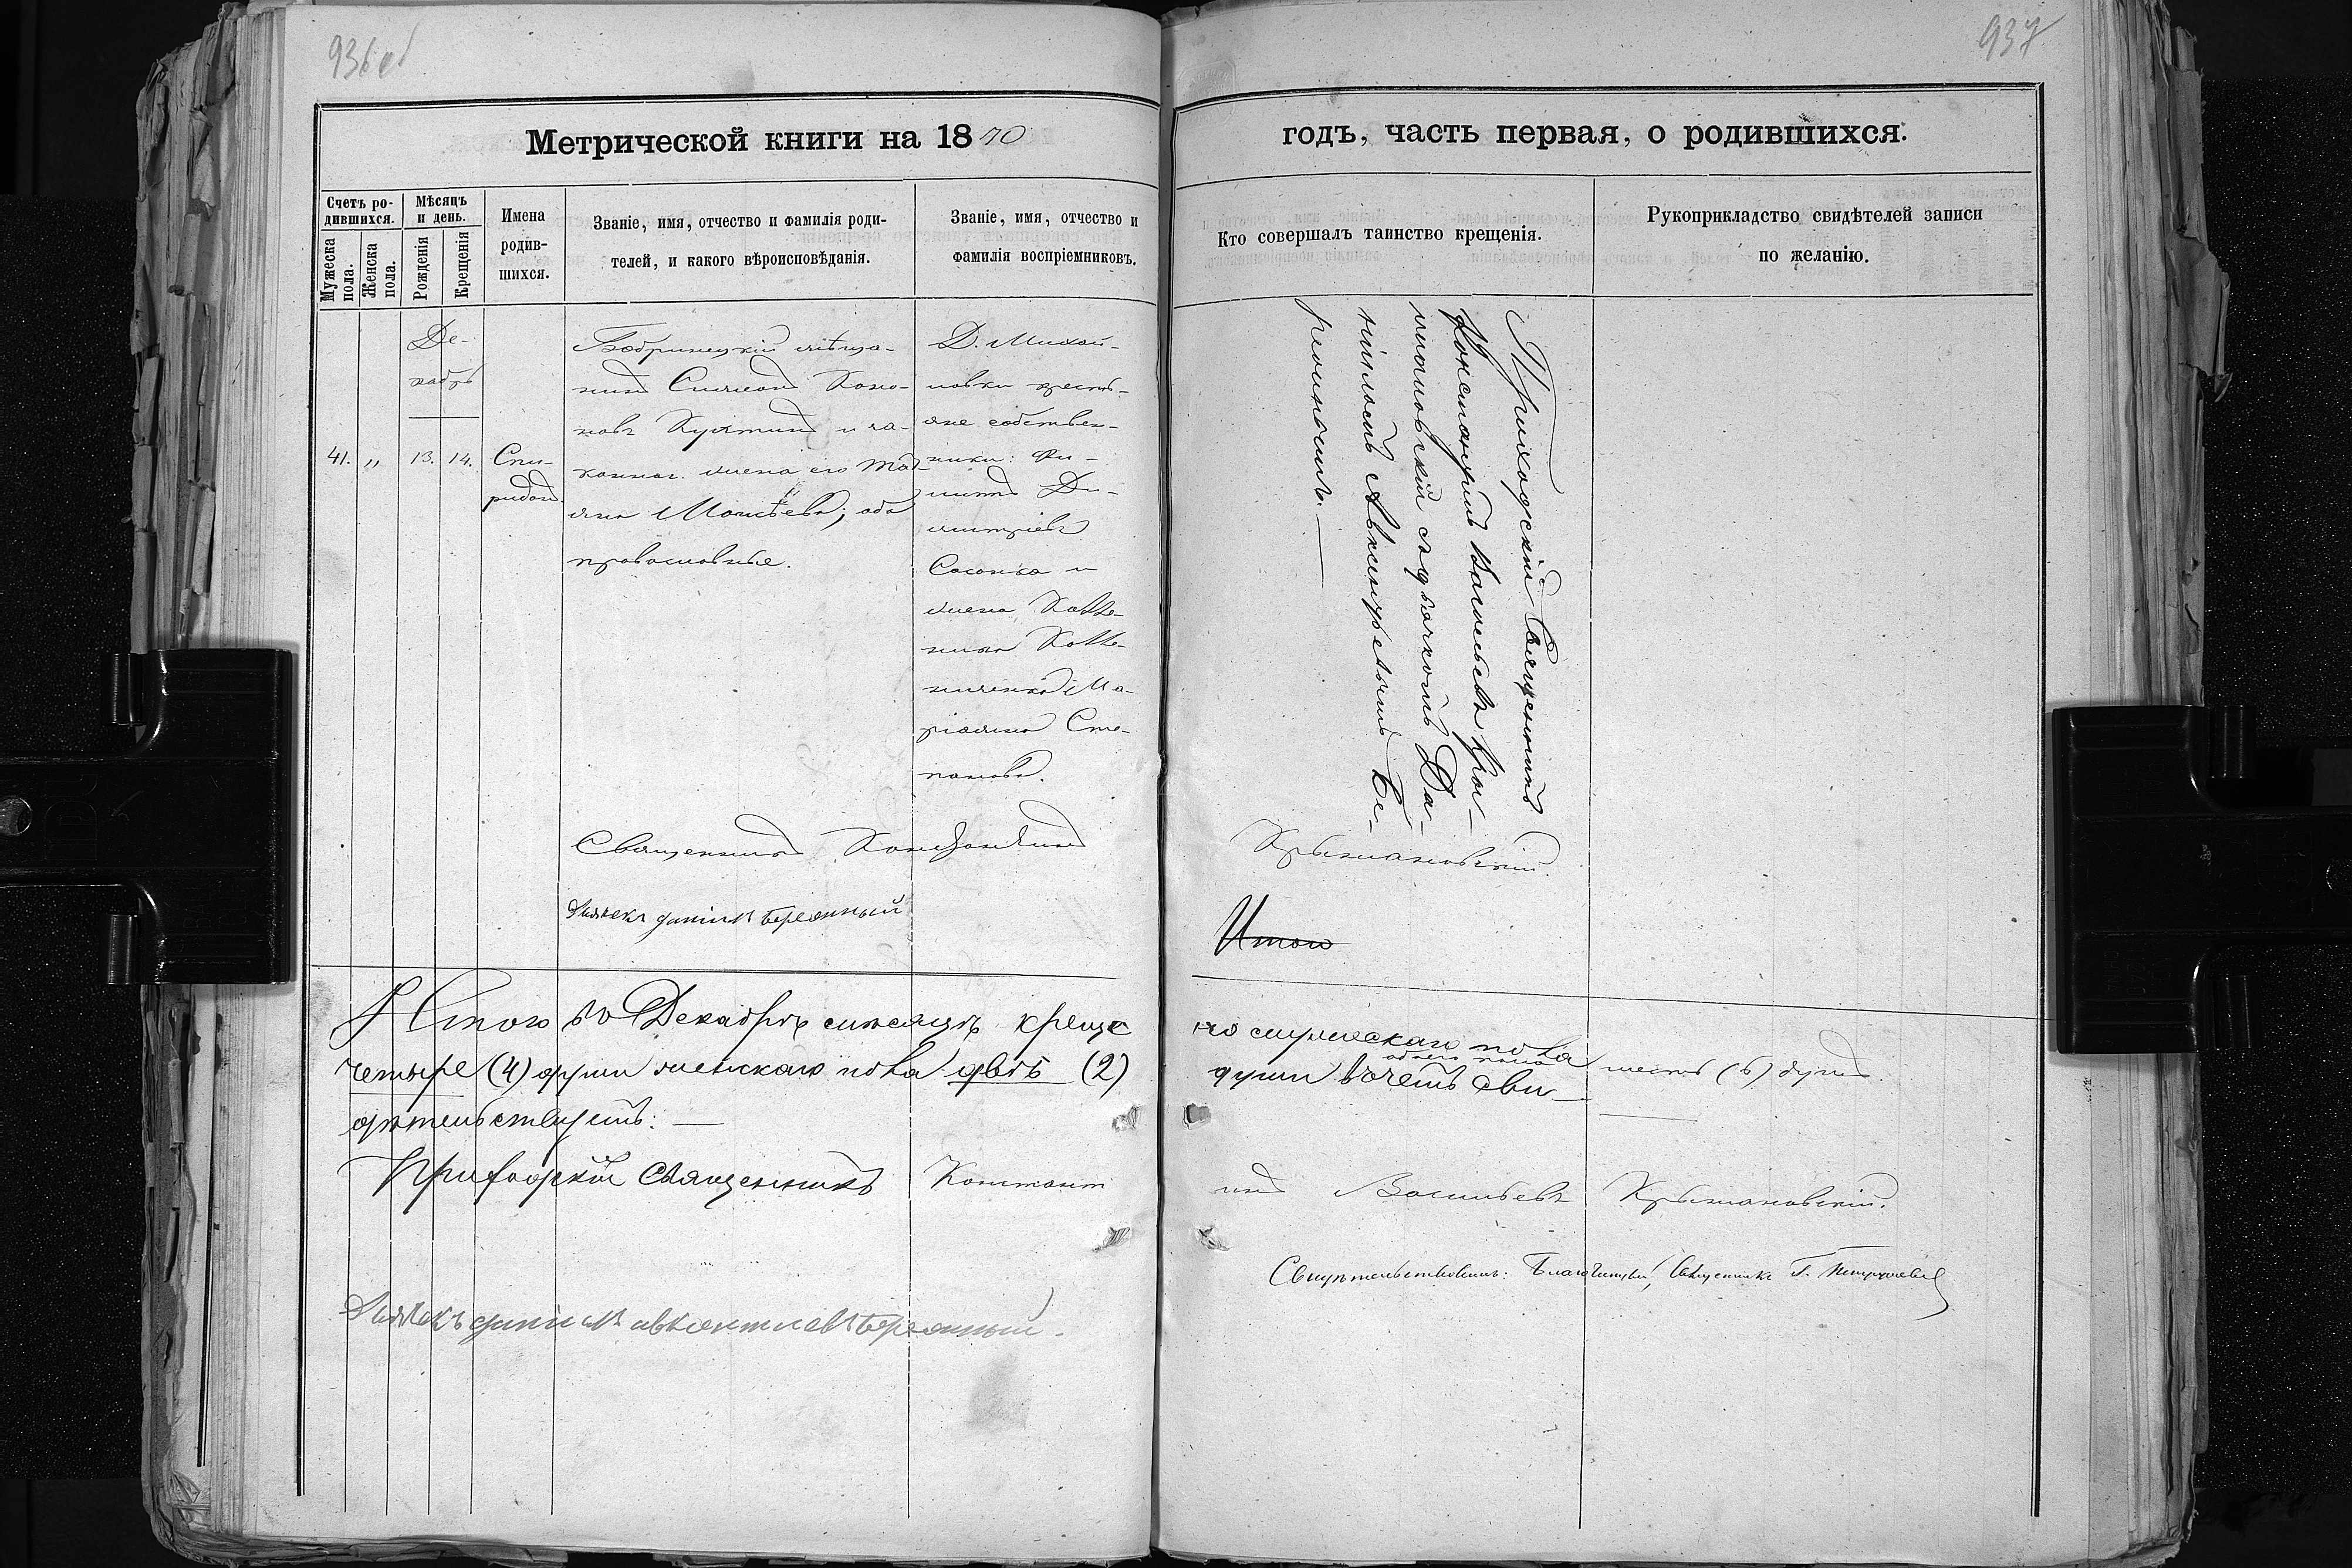 936 об
937
Метрической книги на 1870
годъ, часть первая, о родившихся.
Счетъ ро-
дившихся.
Мужеска
пола.
Женска
пола.
Мѣсяцъ
и день.
Рожденія
Крещенія
Имена
родив-
шихся.
Званіе, имя, отчество и фамилія роди-
телей, и какого вѣроисповѣданія.
Званіе, имя, отчество и
фамилія воспріемниковъ.
Кто совершалъ таинство крещенія.
Рукоприкладство свидѣтелей записи
по желанію.
Де-
кабрь
41. „ 13. 14.
Спи-
ридонъ
Бобринецкій мѣща-
нинъ Симеонъ Коно-
новъ и за-
конная жена его Тат-
іяна Моисѣева; оба
православные.
Д. Михай-
ловки кресть-
яне собствен-
ники: Фи-
липпъ Ди-
митріевъ
и
жена
Ма-
ріамна Сте-
панова.
Приходскій Священникъ
Константинъ Васильевъ Кры-
жановскій съ дьячкомъ Да-
ніиломъ Авксентьевымъ Бе-
Священникъ Константинъ
Крыжановскій.
Дьячекъ Даніилъ
Итого
Итого въ Декабрѣ мѣсяцѣ креще
но мужескаго пола
четыре (4) души женскаго пола двѣ (2)
обоего пола
души въ чемъ сви-
шесть (6) душъ.
дѣтельствуемъ: —
Приходскій Священникъ Констант
инъ Васильевъ Крыжановскій.
Свидѣтельствовалъ: Благочинный, Священникъ Г.
Дьячекъ Даніилъ